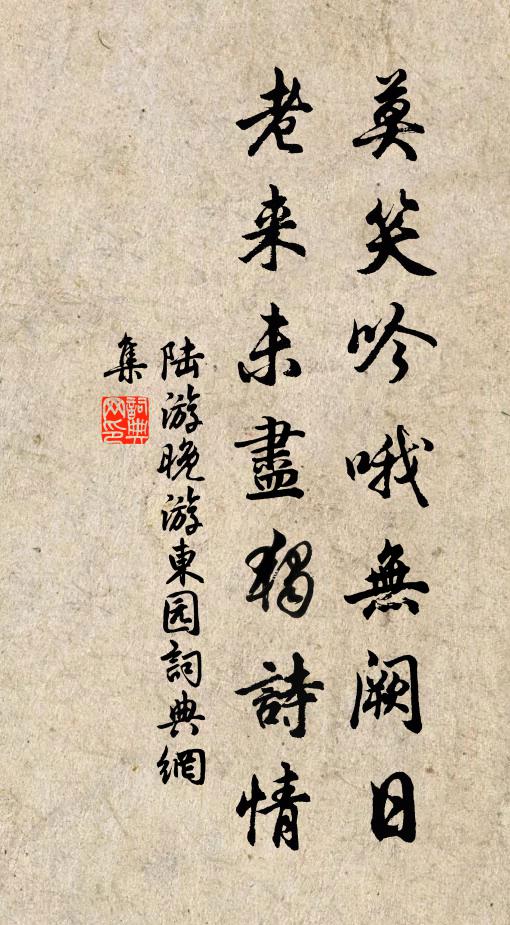 莫笑吟哦無闕日
老来未盡獨詩情
陆游晚游東园詞典網
集
詞典网印